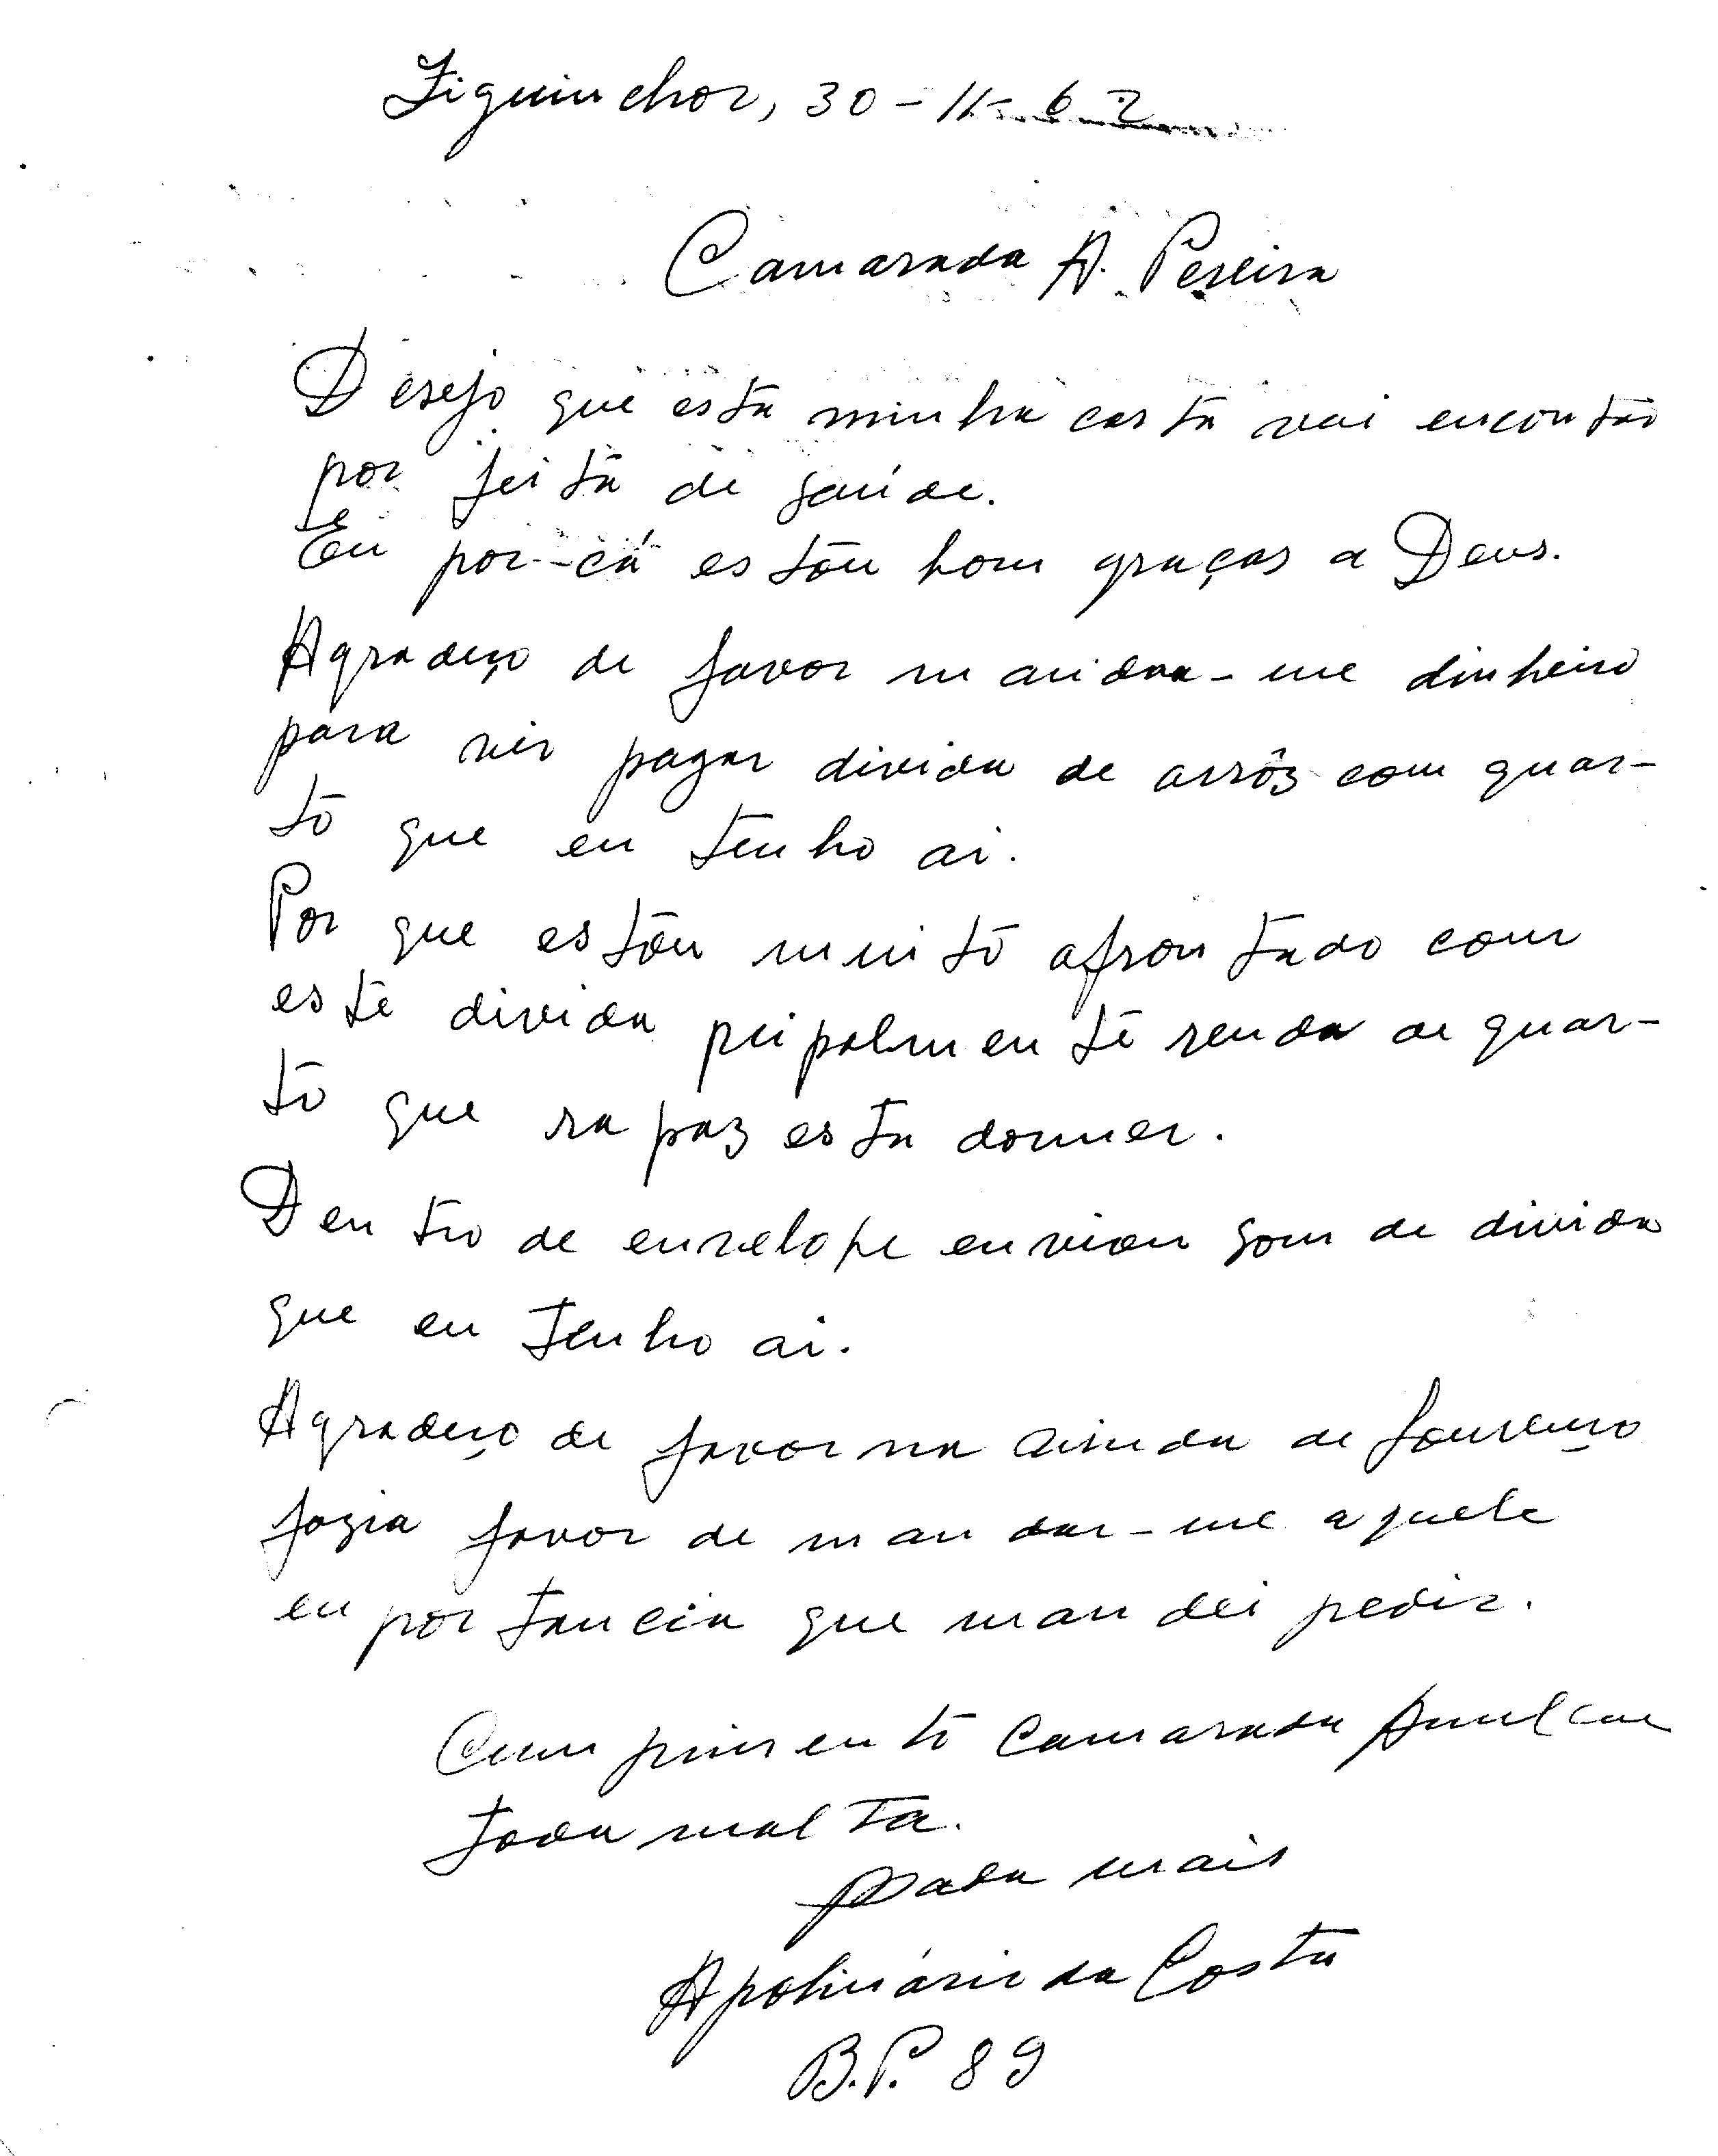 Ziguinchor, 30-11-62
Camarada A. Pereira
Desejo que esta minha carta vai encontrão
por feita de saúde.
Eu por-cá estou bom graças a Deus.
Agradeço de favor mandar-me dinheiro
para vir pagar divida de arrôz com quar-
to que eu tenho ai.
Por que estou muito afrontado com
este divida pripalmente renda de quar-
to que rapaz esta dormer.
Dentro de envelope enviou som de divida
que eu tenho ai.
Agradeço de favor na ainda de Lourenço
fazia favor de mandar-me aquele
enportancia que mandei pedir.
Cumprimento Camarada Amilcar
toda malta.
nada mais
Apolinário da Costa
B.P. 89